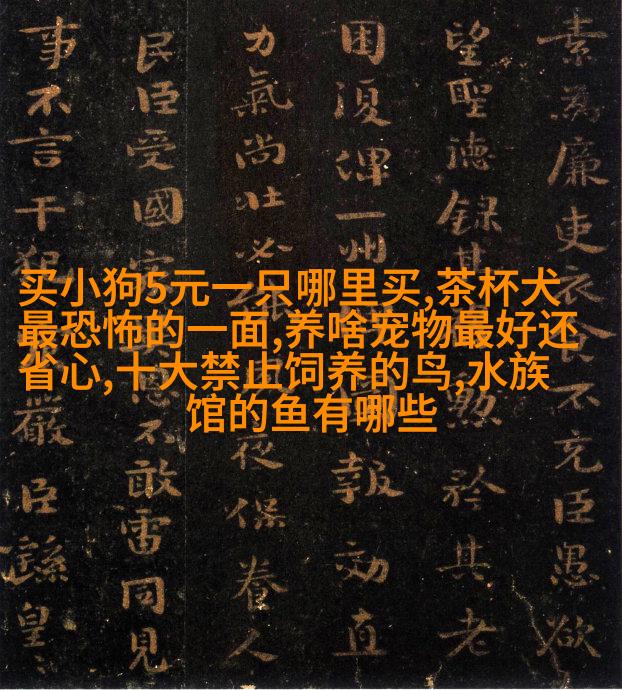 买小狗5元一只哪里买,茶杯犬
最恐怖的一面,养啥宠物最好还
省心,十大禁止饲养的鸟,水族
馆的鱼有哪些
素為廉吏衣食不充臣愚欲
望聖德錄其勲矜其老
困復俾一州報効直
力氣尚壯必夜保養人
民臣受國恩不敢雷同見
事不言干犯嚴臣繇皇